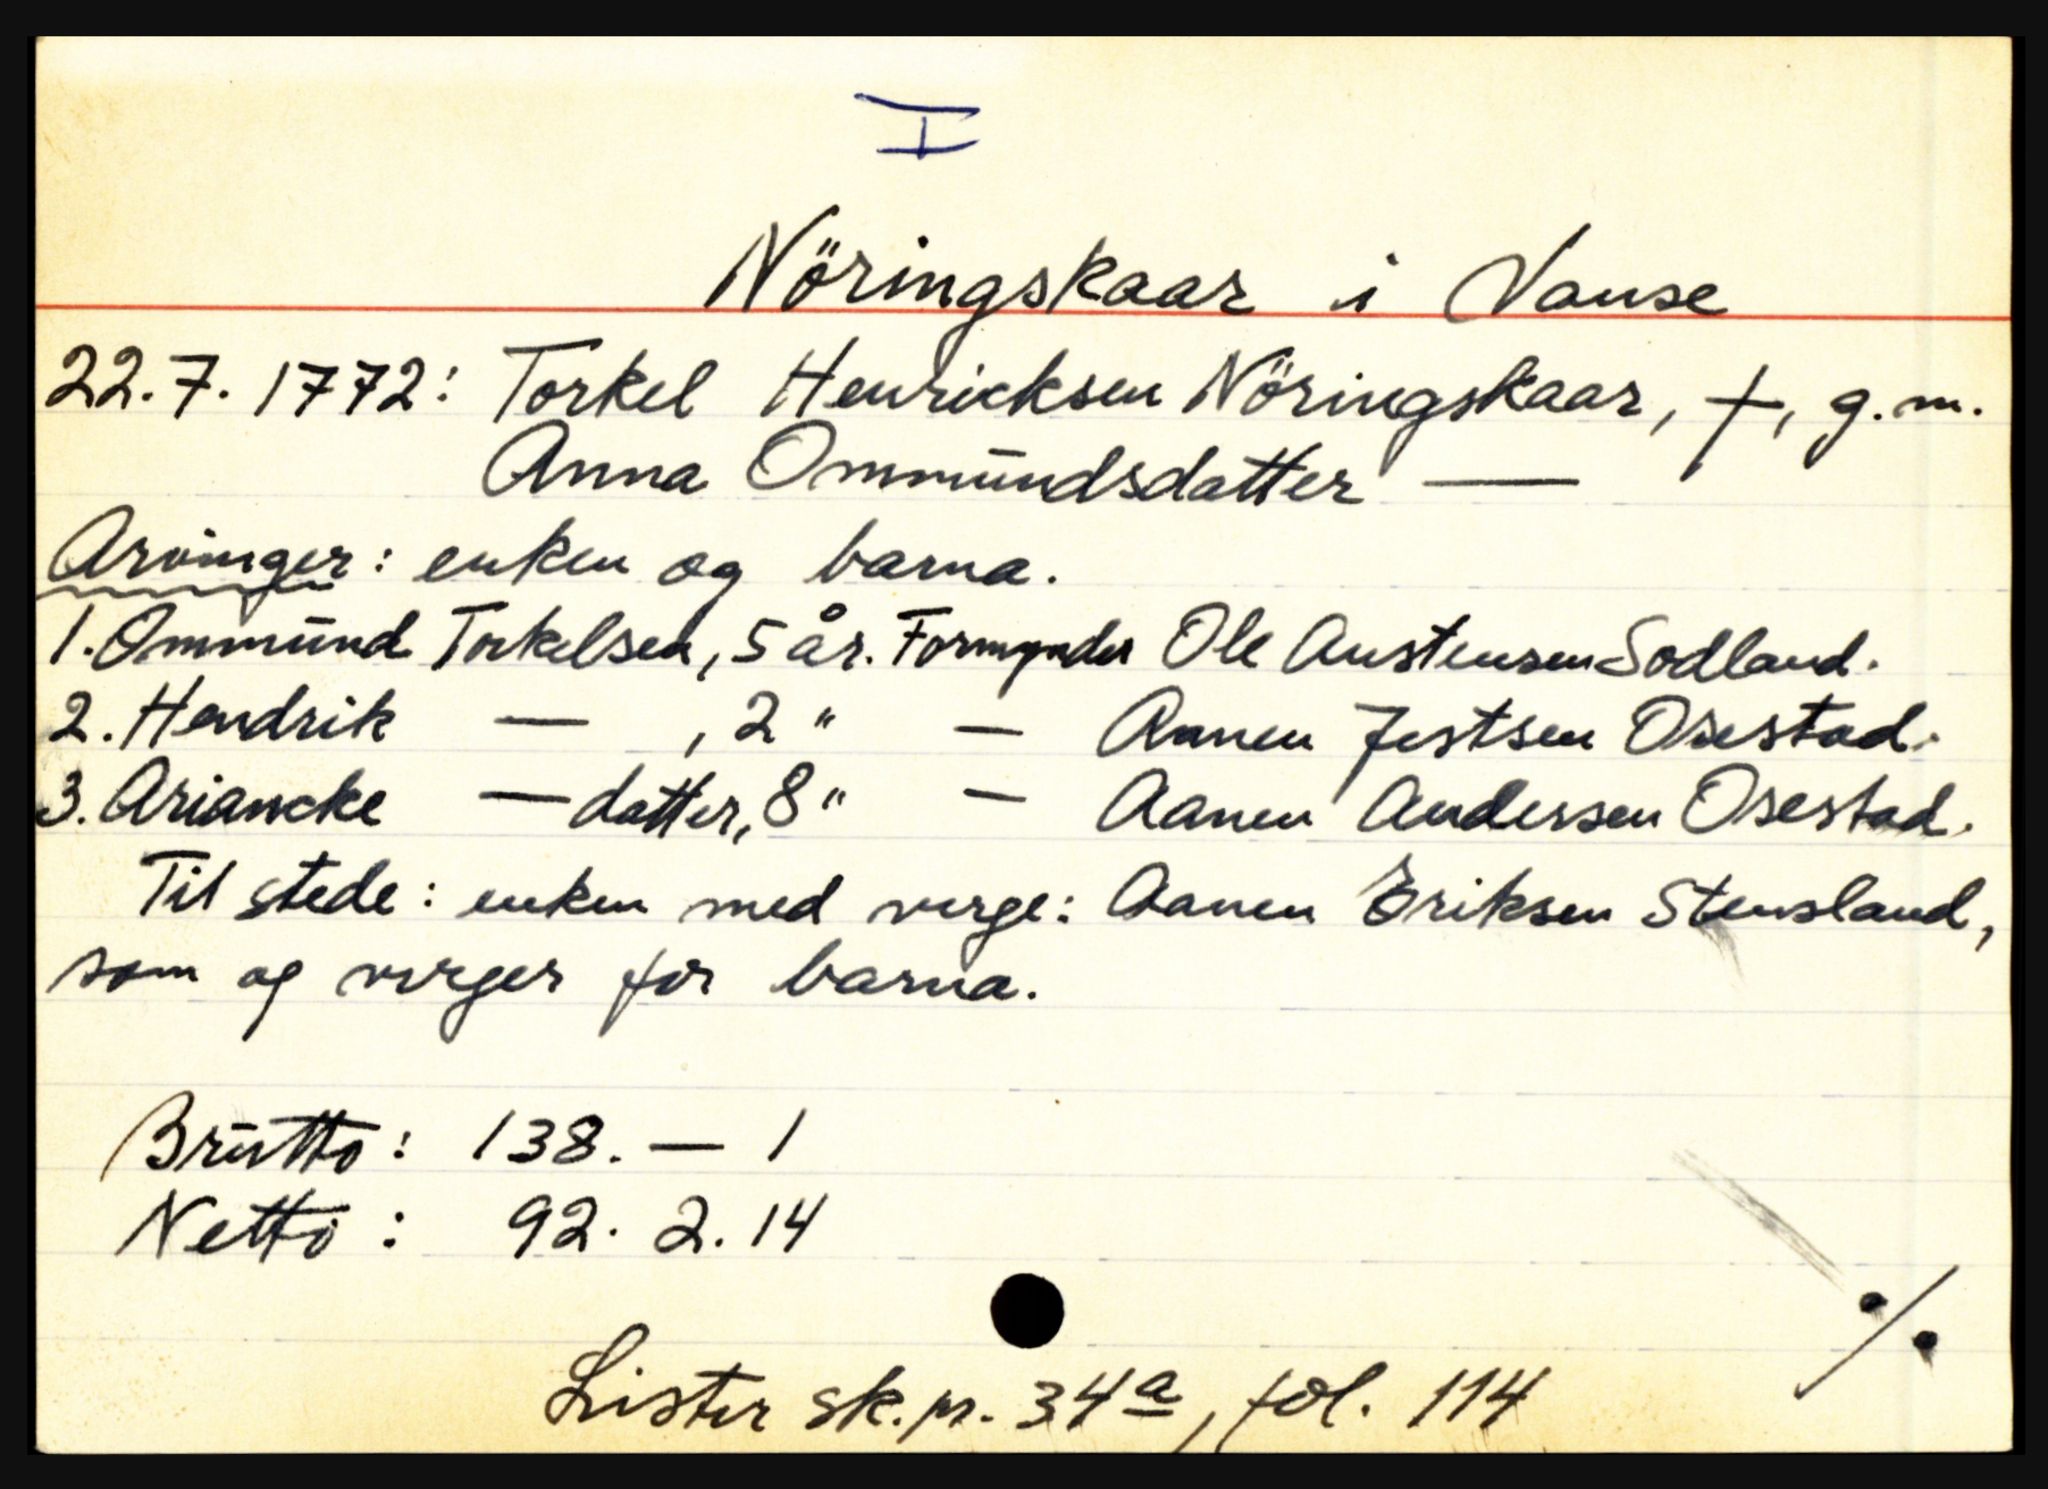 I
Nöringskaar i Vanse
22.7. 1772: Torkel Henricksen Nöringskaar, †, g.m.
Anna Ommundsdatter —
Arvinger: enken og barna.
1. Ommund Torkelsen, 5 år. Formynder Ole Austensen Sodland.
2. Hendrik — , 2 " — Aanen Jestsen Osestad.
3. Ariancke — datter, 8 " — Aanen Andersen Osestad.
Til stede: enken med verge: Aanen Eriksen Stensland,
som og verger for barna.
Brutto: 138. — 1
Netto: 92. 2. 14
%
Lister sk.pr. 34a, fol. 114